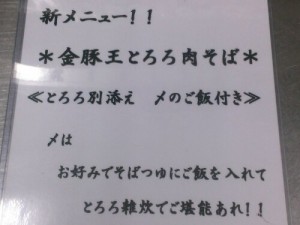 新メニュー!!
*金豚王とろろ肉そば*
≪とろろ別添え 〆のご飯付き≫
〆は
お好みでそばつゆにご飯を入れて
とろろ雑炊でご堪能あれ!!